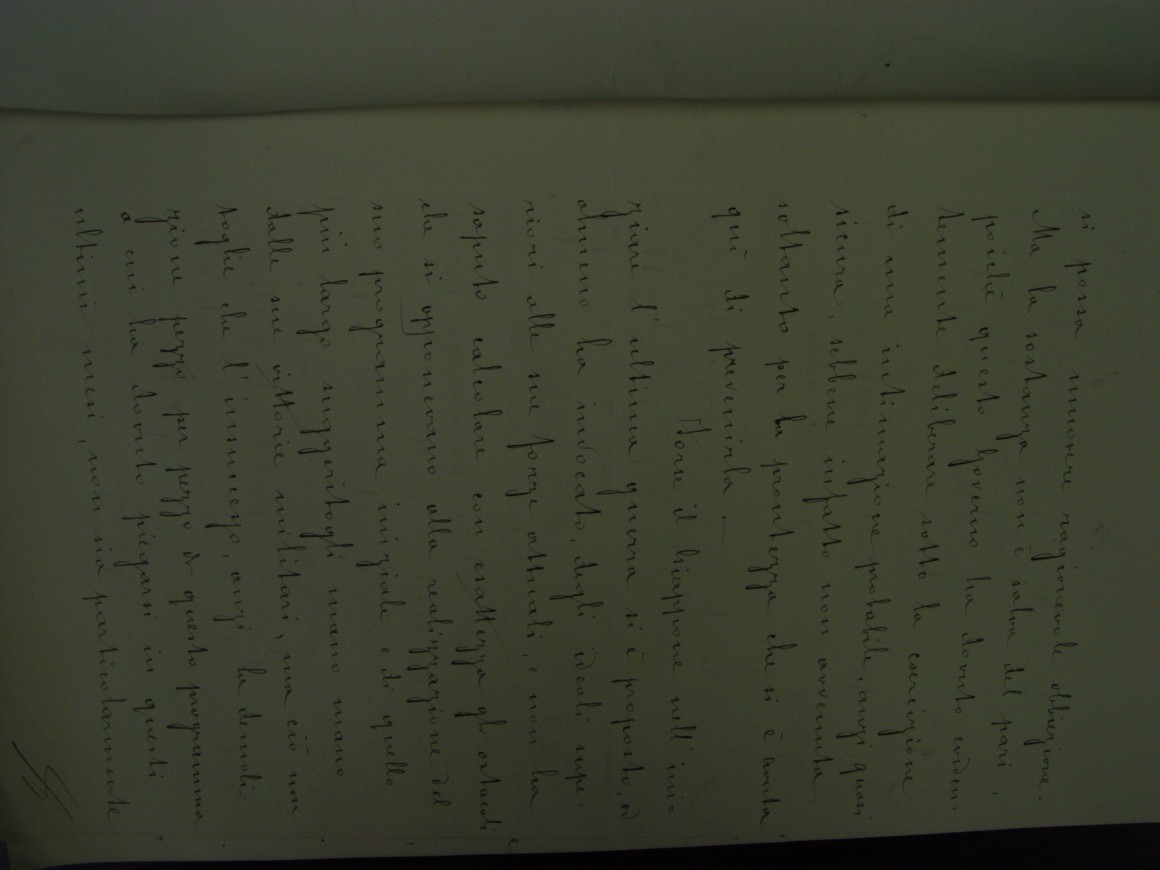 si possa muovere ragionevole obbiezione.
Ma la sostanza non è salva del pari,
poichè questo Governo ha dovuto eviden-
temente deliberare sotto la coercizione
di una intimazione probabile, anzi quasi
sicura, sebbene infatto non avvenuta
soltanto per la prontezza che si è avuta
qui di prevenirla. —
Forse il Giappone nell'ini=
ziare l'ultima guerra si è proposto, od
almeno ha invocato, degli ideali supe-
riori alle sue forze attuali, e non ha
saputo calcolare con esattezza gli ostacoli
che si opponevano alla realizzazione del
suo programma iniziale e di quello
più largo suggeritogli mano mano
dalle sue vittorie militari, ma ciò non
toglie che l'insuccesso, anzi la demoli-
zione pezzo per pezzo di questo programma
a cui ha dovuto piegarsi in questi
ultimi mesi, non sia particolarmente